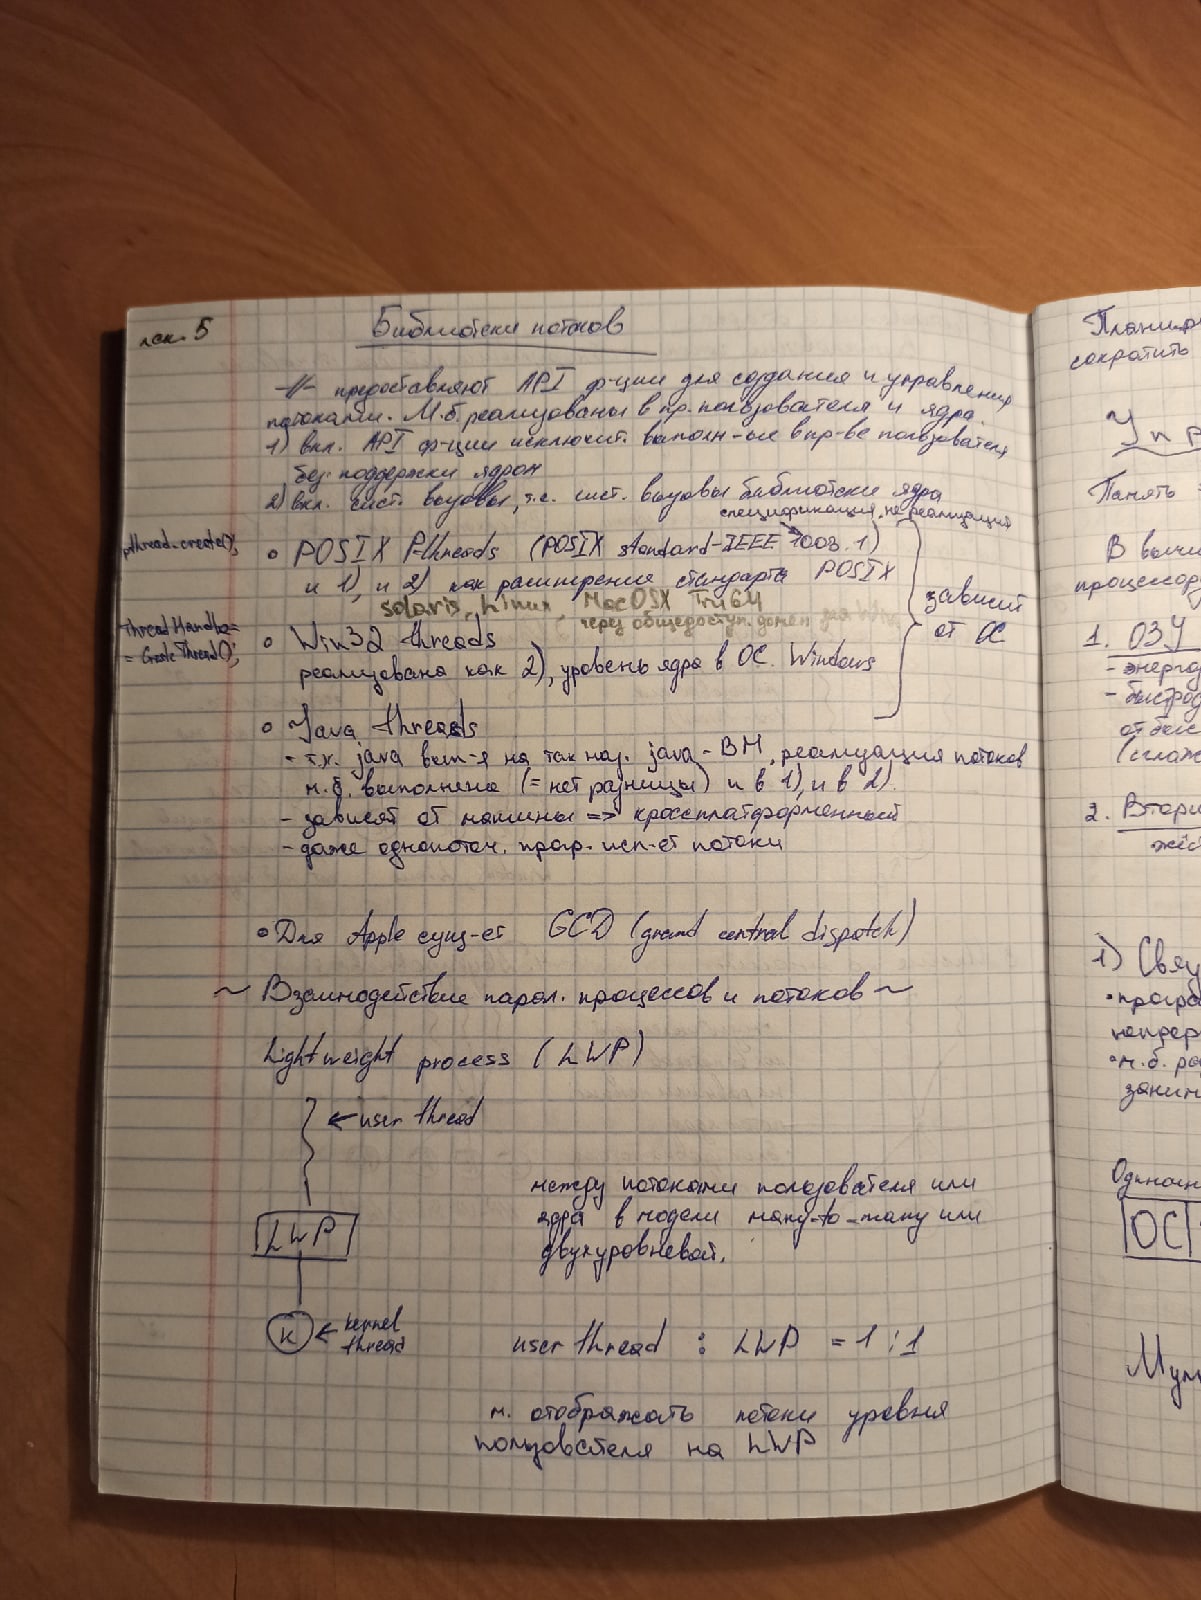 лек. 5
Библиотеки потоков
-//- предоставляют API ф-ции для создания и управления
потоками. М.б. реализованы в пр. пользователя и ядра
1) вкл. API ф-ции исключит. выполн-ые в пр-ве пользователя
без поддержки ядром
2) вкл. сист. вызовы, т.е. сист. вызовы библиотеки ядра
спецификация, не реализация
pthread_create();
• POSIX Pthreads (POSIX standard-IEEE 1003.1)
и 1), и 2) как расширение стандарта POSIX
solaris, Linux, MacOSX Tru64
через общедоступ. домен для
зависит
от ОС
ThreadHandle=
= CreateThread();
• Win32 threads
реализована как 2), уровень ядра в ОС. Windows
• Java threads
- т.к. java вып-я на так наз. java-ВМ, реализация потоков
м.б. выполнена (= нет разницы) и в 1), и в 2).
- зависят от машины => кроссплатформенный
- даже однопоточ. прогр. исп-ет потоки
• Для Apple сущ-ет GCD (grand central dispatch)
~ Взаимодействие парал. процессов и потоков ~
Lightweight process (LWP)
← user thread
между потоками пользователя или
ядра в модели many-to-many или
двухуровневой.
LWP
K ← kernel
thread
user thread : LWP = 1 : 1
м. отображать потоки уровня
пользователя на LWP
сократить
Память
В вычи
процессор
1. ОЗУ
- энерго
- быстрод
от быс
2. Втори
жёс
1) Свяу
• м.б. ра
заним
Одиноч
ОС
Мул